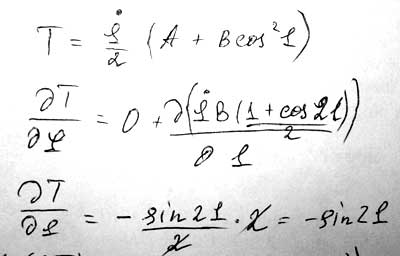 T = φ̇/2 (A + B cos²φ)
∂T/∂φ = 0 + ∂(φ̇B(1 + cos2φ)/2)/∂φ
∂T/∂φ = - sin2φ/2 · 2 = - sin2φ